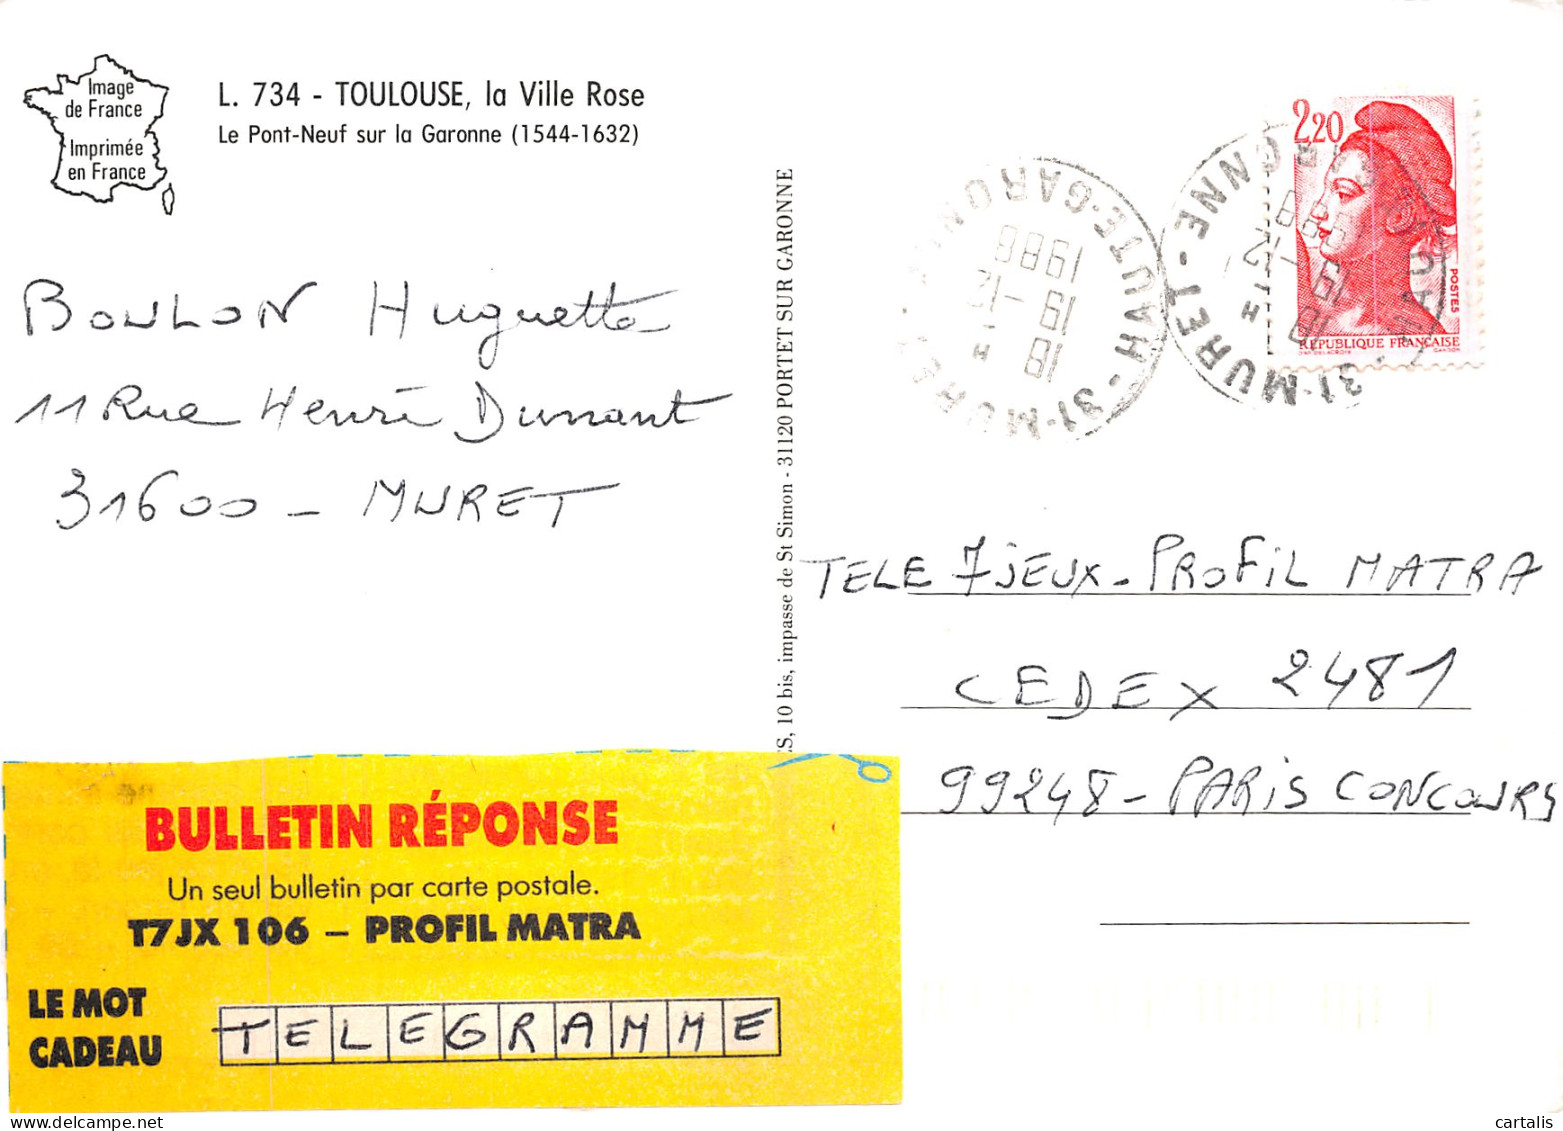 Image
de France
Imprimée
en France
L. 734 - TOULOUSE, la Ville Rose
Le Pont-Neuf sur la Garonne (1544-1632)
BOULON Huguette
11 Rue Henri Dunant
31600 - MURET
S, 10 bis, impasse de St Simon - 31120 PORTET SUR GARONNE
31-MURET - HAUTE-GARONNE
18 H
19-12
1988
31-MURET - HAUTE-GARONNE
18 H
19-12
1988
2,20
POSTES
RÉPUBLIQUE FRANÇAISE
D'AP. DELACROIX GANDON
TELE 7 JEUX - PROFIL MATRA
CEDEX 2481
99248 - PARIS CONCOURS
BULLETIN RÉPONSE
Un seul bulletin par carte postale.
T7JX 106 – PROFIL MATRA
LE MOT
CADEAU
TELEGRAMME
delcampe.net
cartalis